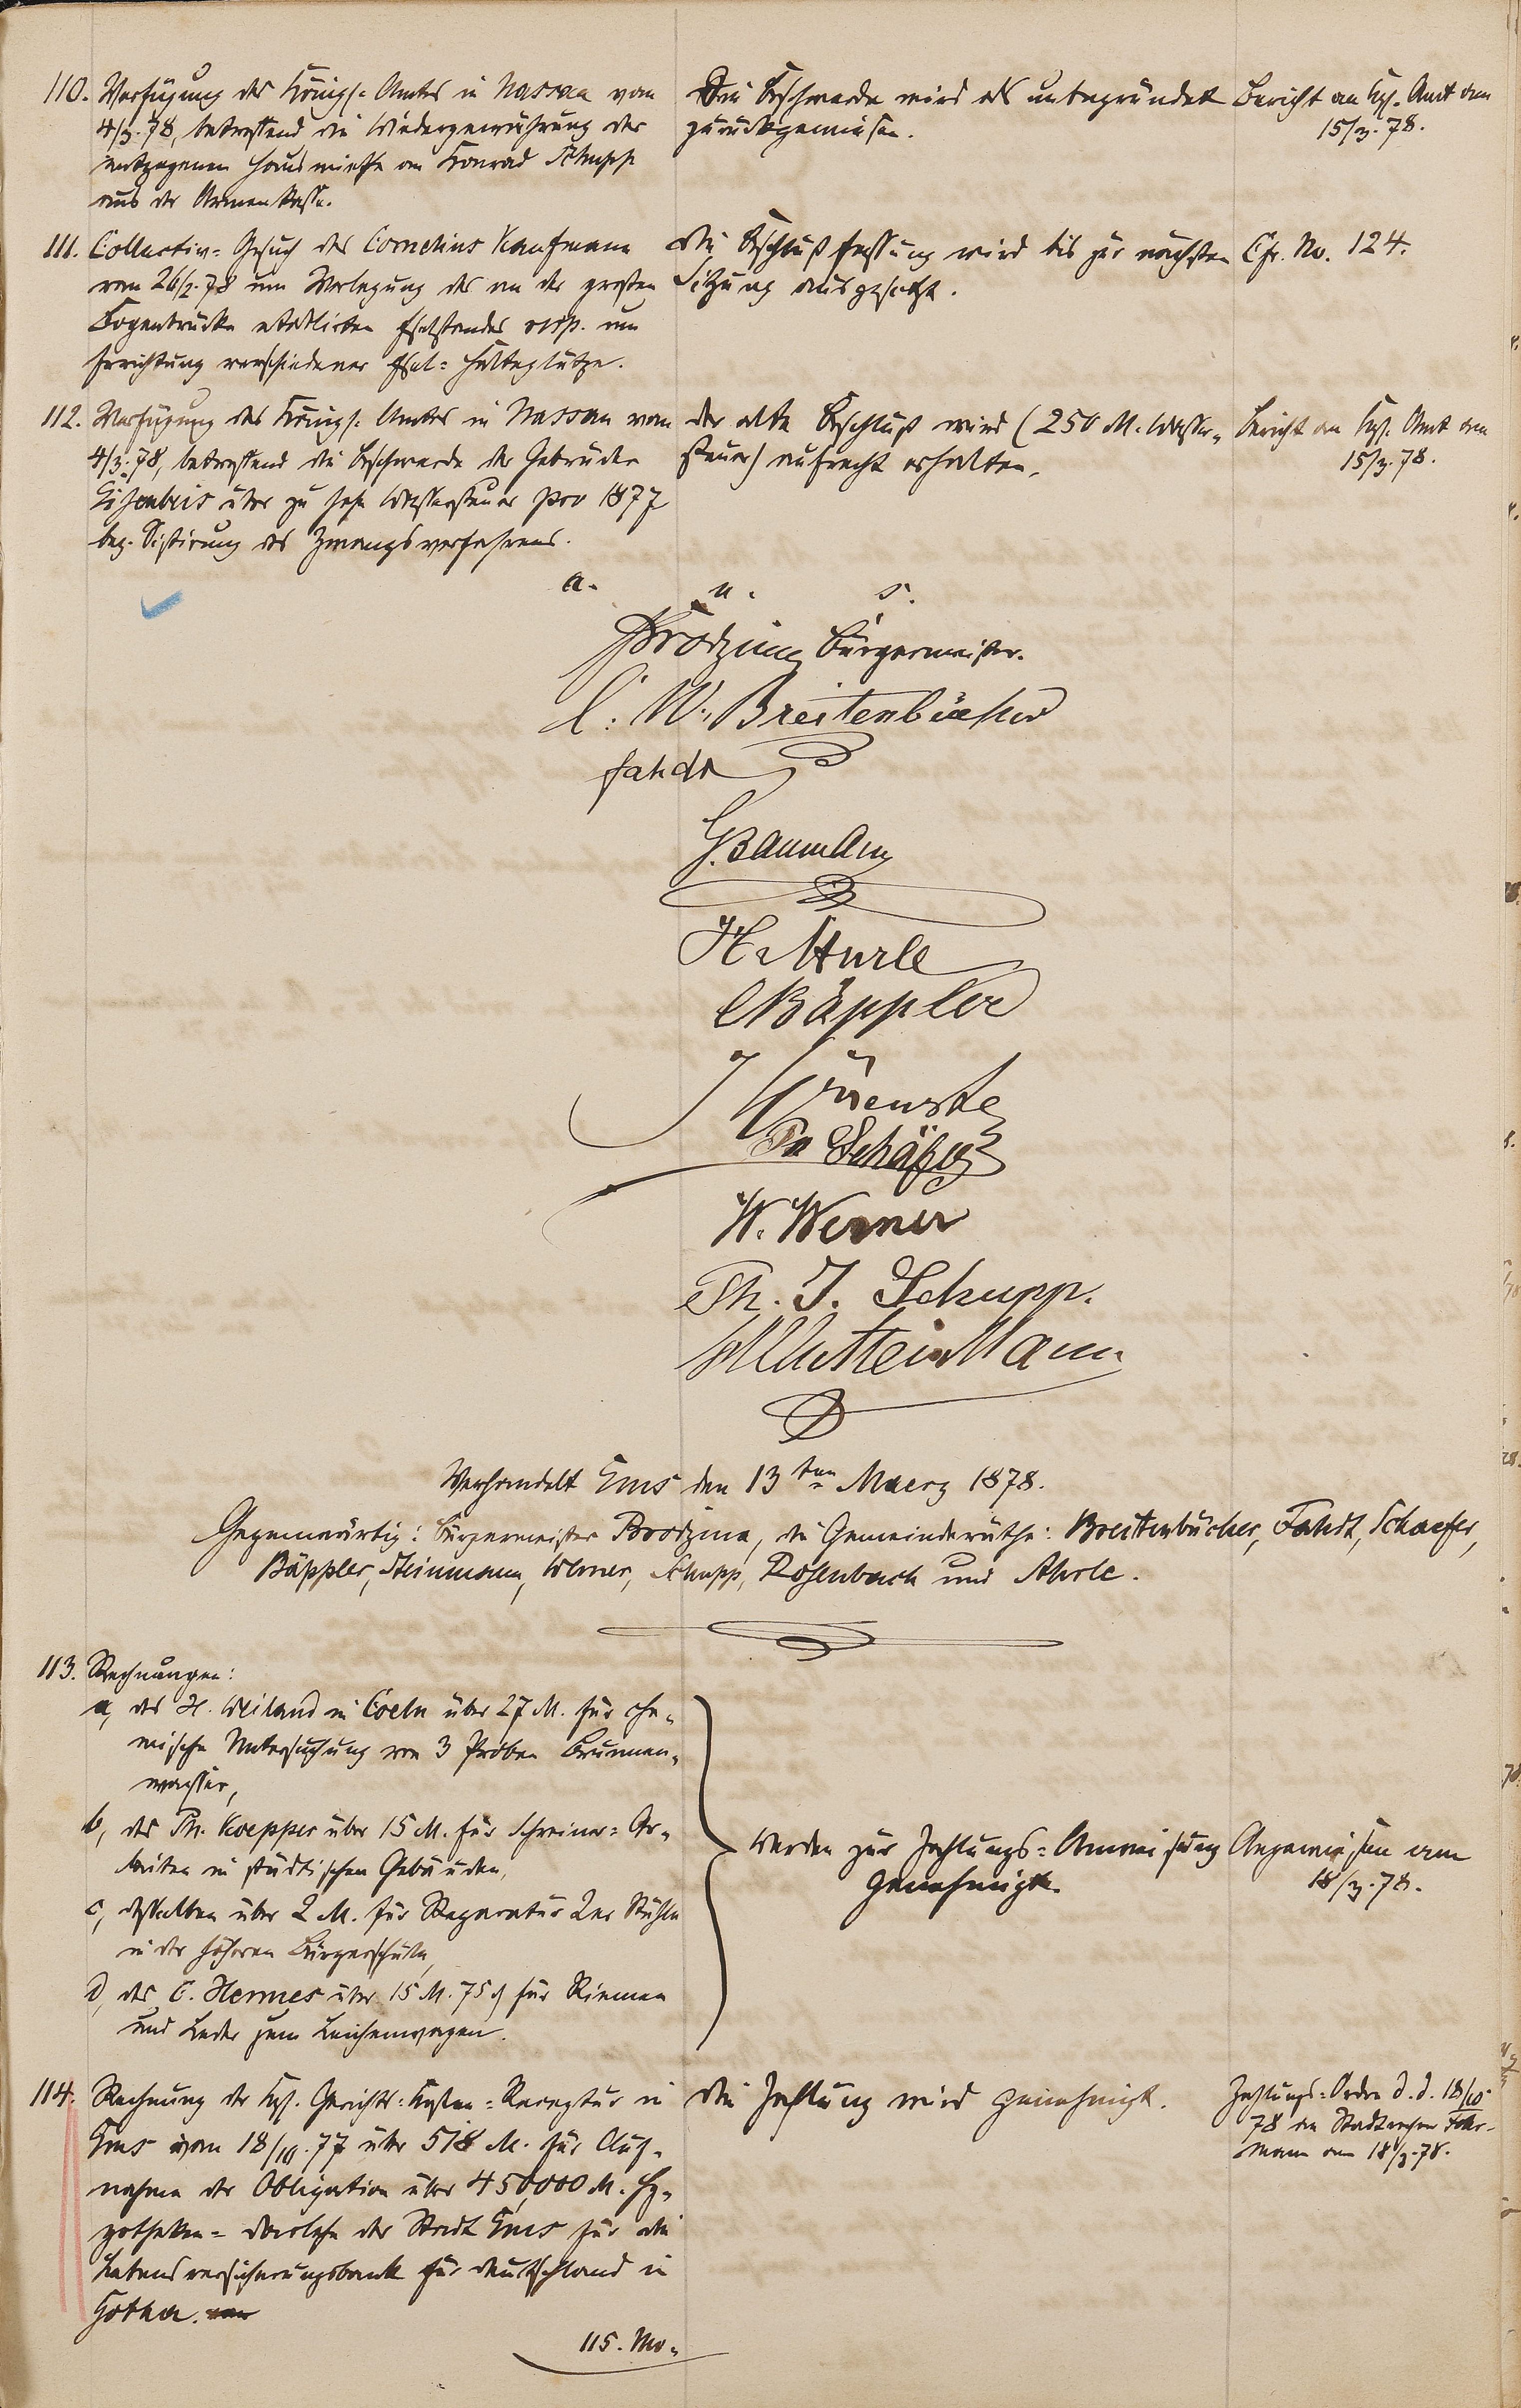 110. Verfügung des Königl. Amtes in Nassau vom
4/3. 78, betreffend die Wiedergewährung der
entzogenen Hausmiethe an Konrad Schupp
aus der Armenkasse.
Die Beschwerde wird als unbegründet
zurückgewiesen.
Bericht an Kgl. Amt am
15/3. 78.
111. Collectiv-Gesuch des Cornelius Kaufmann
vom 26/2. 78 um Verlegung des an der großen
Bogenbrücke etablirten Eselstandes resp. um
Errichtung verschiedener Esel-Halteplätze.
Die Beschlußfassung wird bis zur nächsten
Sitzung ausgesetzt.
Cfr. No. 124.
112. Verfügung des Königl. Amtes in Nassau vom
4/3. 78, betreffend die Beschwerde der Gebrüder
über zu hohe Wassersteuer pro 1877
bez. Sistirung des Zwangsverfahrens.
Der alte Beschluß wird (250 M. Wasser-
steuer) aufrecht erhalten.
Bericht an Kgl. Amt am
15/3. 78.
a. u. s.
Brodzina Bürgermeister.
C. W. Breitenbücher
Fahdt
G. Baumann
H. Ahrle
C Bäppler
J
Ph Schäfer
W. Werner
Ph. J. Schupp.
Verhandelt Ems den 13ten Maerz 1878.
Gegenwärtig: Bürgermeister Brodzina, die Gemeinderäthe: Breitenbücher, Fahdt, Schaefer,
Bäppler, Steinmann, Werner, Schupp, Rosenbach und Ahrle.
113. Rechnungen:
a, des H. Weiland in Coeln über 27 M. für che-
mische Untersuchung von 3 Proben Brunnen-
wasser,
b, des Ph. Koepper über 15 M. für Schreiner-Ar-
beiten in städtischen Gebäuden,
c, desselben über 2 M. für Reparatur 2er Stühle
in der höheren Bürgerschule,
d, des C. Hermes über 15 M. 75 ₰ für Riemen
und Leder zum Leichenwagen.
Werden zur Zahlungs-Anweisung
genehmigt.
Angewiesen am
18/3. 78.
114. Rechnung der Kgl. Gerichts-Kosten-Receptur in
Ems vom 18/10. 77 über 518 M. für Auf-
nahme der Obligation über 450,000 M. Hy-
potheken-Darlehn der Stadt Ems für die
Lebensversicherungsbank für Deutschland in
Gotha.
Die Zahlung wird genehmigt.
Zahlungs-Ordre d. d. 18/10
78 an Stadtrechner
mann am 18/3. 78.
115. Mo-